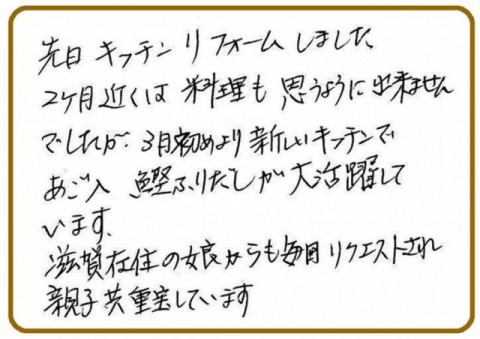 先日 キッチンリフォームしました、
2ヶ月近くは 料理も 思うように出来ません
でしたが、3月初めより 新しいキッチンで
あご入 鰹ふりだしが 大活躍して
います、
滋賀在住の娘からも毎回リクエストされ
親子共重宝しています